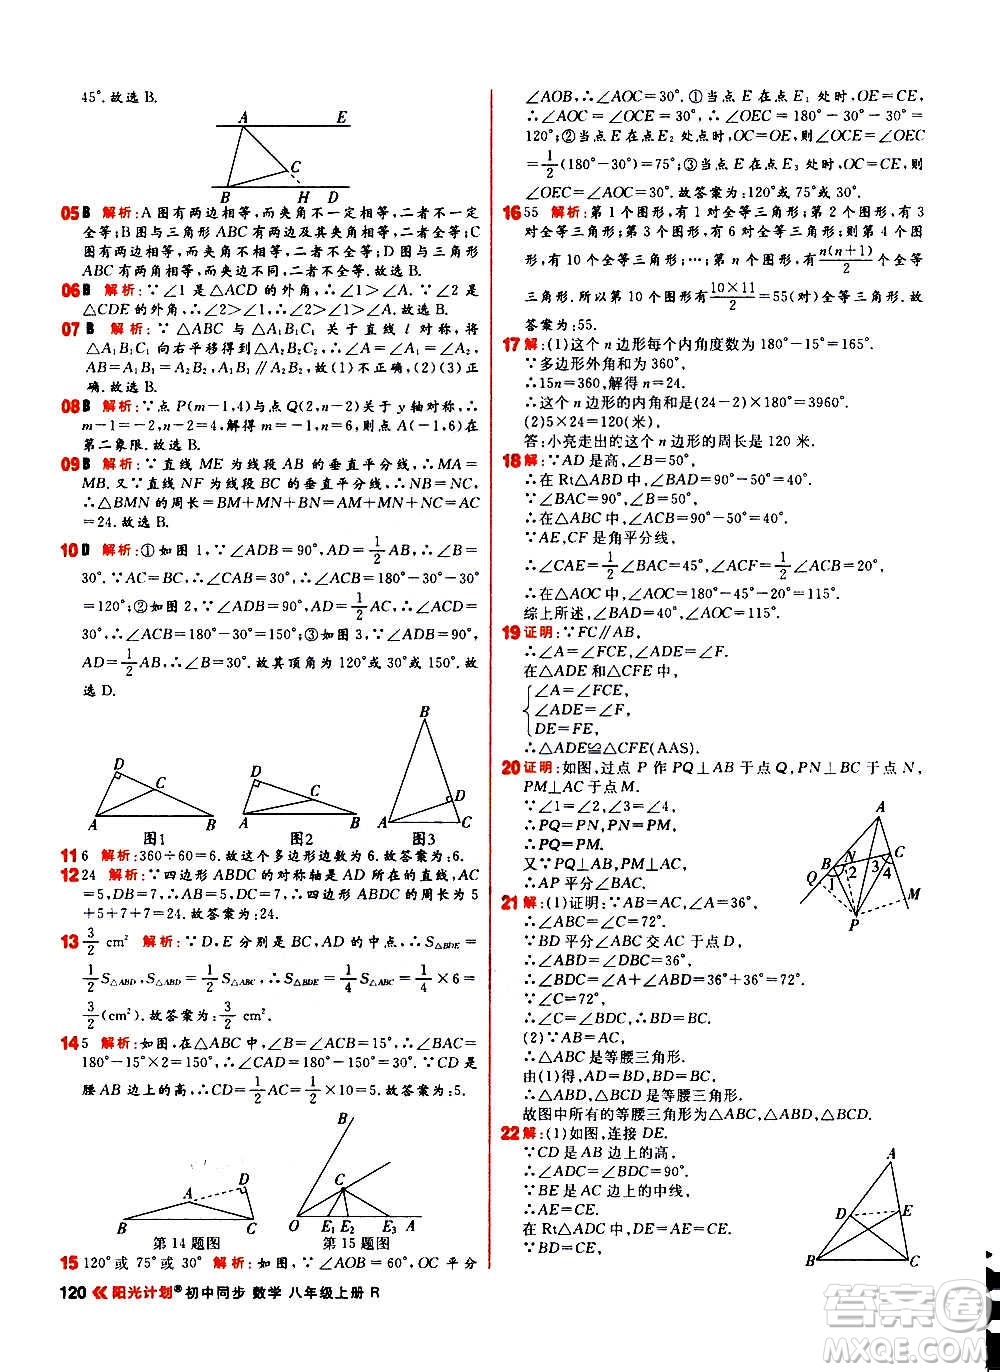 45°.故选 B.
A E
C
B H D
05 B 解析:A 图有两边相等,而夹角不一定相等,二者不一定
全等;B 图与三角形 ABC 有两边及其夹角相等,二者全等;C
图有两边相等,而夹角不相等,二者不全等;D 图与三角形
ABC 有两角相等,而夹边不同,二者不全等.故选 B.
06 B 解析:∵∠1 是△ACD 的外角,∴∠1＞∠A.∵∠2 是
△CDE 的外角,∴∠2＞∠1,∴∠2＞∠1＞∠A.故选 B.
07 B 解析:∵△ABC 与△A₁B₁C₁ 关于直线 l 对称,将
△A₁B₁C₁ 向右平移得到△A₂B₂C₂,∴结论(1)(2)(3)正
确,故选 B.
08 B 解析:∵点 P(m－1,4)与点 Q(2,n－2)关于 y 轴对称,∴
m－1＝－2,n－2＝4,∴m＝－1,n＝6,∴点 A(－1,6)在
第二象限.故选 B.
09 B 解析:∵直线 ME 为线段 AB 的垂直平分线,∴MA＝
MB.又∵直线 NF 为线段 BC 的垂直平分线,∴NB＝NC,
∴△BMN 的周长＝BM＋MN＋BN＝AM＋MN＋NC＝AC
＝24.故选 B.
10 D 解析:①如图 1,∵∠ADB＝90°,AD＝1/2AB,∴∠B＝
30°.∵AC＝BC,∴∠CAB＝30°,∴∠ACB＝180°－30°－30°
＝120°;②如图 2,∵∠ADB＝90°,AD＝1/2AC,∴∠ACD＝
30°,∴∠ACB＝180°－30°＝150°;③如图 3,∵∠ADB＝90°,
AD＝1/2AB,∴∠B＝30°.故其顶角为 120°或 30°或 150°.故
选 D.
D C A B 图1
D C A B 图2
B D A C 图3
11 6 解析:360÷60＝6.故这个多边形边数为 6.故答案为:6.
12 24 解析:∵四边形 ABDC 的对称轴是 AD 所在的直线,AC
＝5,DB＝7,∴AC＝AB＝5,DC＝7,∴四边形 ABDC 的周长为
5＋5＋7＋7＝24.故答案为:24.
13 3/2 cm² 解析:∵D,E 分别是 BC,AD 的中点,∴S△BDE＝
1/2S△ABD,S△ABD＝1/2S△ABC,∴S△BDE＝1/4S△ABC＝1/4×6＝
3/2(cm²).故答案为:3/2 cm².
14 5 解析:如图,在△ABC 中,∠B＝∠ACB＝15°,∴∠BAC＝
180°－15°×2＝150°,∴∠CAD＝180°－150°＝30°.∵CD 是
腰 AB 边上的高,∴CD＝1/2AC＝1/2×10＝5.故答案为:5.
D A B C 第 14 题图
B C O E₁ E₂ E₃ A 第 15 题图
15 120°或 75°或 30° 解析:如图,∵∠AOB＝60°,OC 平分
∠AOB,∴∠AOC＝30°.①当点 E 在点 E₁ 处时,OE＝CE,
∴∠AOC＝∠OCE＝30°,∴∠OEC＝180°－30°－30°＝
120°;②当点 E 在点 E₂ 处时,OC＝OE,∴∠OCE＝∠OEC
＝1/2(180°－30°)＝75°;③当点 E 在点 E₃ 处时,OC＝CE,则
∠OEC＝∠AOC＝30°.故答案为:120°或 75°或 30°.
16 55 解析:第 1 个图形,有 1 对全等三角形;第 2 个图形,有 3
对全等三角形;第 3 个图形,有 6 对全等三角形;第 4 个图
形,有 10 个全等三角形;…;第 n 个图形,有 n(n＋1)/2 个全等
三角形.所以第 10 个图形,有 10×11/2＝55(对)全等三角形.故
答案为:55.
17 解:(1)这个 n 边形每个内角度数为 180°－15°＝165°.
∵多边形外角和为 360°,
∴15n＝360,解得 n＝24.
∴这个 n 边形的内角和是(24－2)×180°＝3960°.
(2)5×24＝120(米).
答:小亮走出的这个 n 边形的周长是 120 米.
18 解:∵AD 是高,∠B＝50°,
∴在 Rt△ABD 中,∠BAD＝90°－50°＝40°.
∵∠BAC＝90°,∠B＝50°,
∴在△ABC 中,∠ACB＝90°－50°＝40°.
∵AE,CF 是角平分线,
∴∠CAE＝1/2∠BAC＝45°,∠ACF＝1/2∠ACB＝20°.
∴在△AOC 中,∠AOC＝180°－45°－20°＝115°.
综上所述,∠BAD＝40°,∠AOC＝115°.
19 证明:∵FC∥AB,
∴∠A＝∠FCE,∠ADE＝∠F.
在△ADE 和△CFE 中,
∠A＝∠FCE,
∠ADE＝∠F,
DE＝FE,
∴△ADE≌△CFE(AAS).
20 证明:如图,过点 P 作 PQ⊥AB 于点 Q,PN⊥BC 于点 N,
PM⊥AC 于点 M.
∵∠1＝∠2,∠3＝∠4,
∴PQ＝PN,PN＝PM,
∴PQ＝PM.
又∵PQ⊥AB,PM⊥AC,
∴AP 平分∠BAC.
A B N C Q 1 2 3 4 M P
21 解:(1)证明:∵AB＝AC,∠A＝36°,
∴∠ABC＝∠C＝72°.
∵BD 平分∠ABC 交 AC 于点 D,
∴∠ABD＝∠DBC＝36°,
∴∠BDC＝∠A＋∠ABD＝36°＋36°＝72°.
∵∠C＝72°,
∴∠C＝∠BDC,∴BC＝BD.
(2)∵AB＝AC,
∴△ABC 是等腰三角形.
由(1)得,AD＝BD＝BC,
∴△ABD,△BCD 是等腰三角形.
故图中所有的等腰三角形为△ABC,△ABD,△BCD.
22 解:(1)如图,连接 DE.
∵CD 是 AB 边上的高,
∴∠ADC＝∠BDC＝90°.
∵BE 是 AC 边上的中线,
∴AE＝CE.
在 Rt△ADC 中,
∵AE＝CE,
A D E B C
120 《 阳光计划® 初中同步 数学 八年级上册 R
答案圈
MXQE.COM